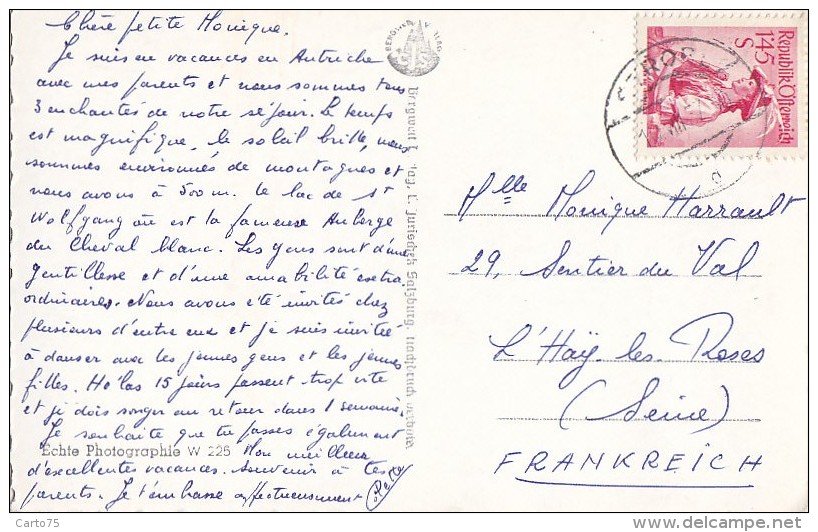 Chère petite Monique,
Je suis en vacances en Autriche
avec mes parents et nous sommes tous
3 enchantés de notre séjour. Le temps
est magnifique, le soleil brille, nous
sommes environnés de montagnes et
nous avons à 500 m. le lac de St
Wolfgang où est la fameuse Auberge
du Cheval blanc. Les gens sont d'une
gentillesse et d'une amabilité extra
ordinaires. Nous avons été invités chez
plusieurs d'entre eux et je suis invitée
à danser avec les jeunes gens et les jeunes
filles. Hélas 15 jours passent trop vite
et je dois songer au retour dans 1 semaine.
Je souhaite que tu passes également
d'excellentes vacances. Mon meilleur
souvenir à tes
parents. Je t'embrasse affectueusement
Echte Photographie W 225
BERGWELT VERLAG
Bergwelt Verlag, C. Jurischek Salzburg, Nachdruck verboten
Republik Österreich
1'45
S
Mlle Monique Harrault
29, Sentier du Val
L'Haÿ-les-Roses
(Seine)
FRANKREICH
Carto75
delcampe.net